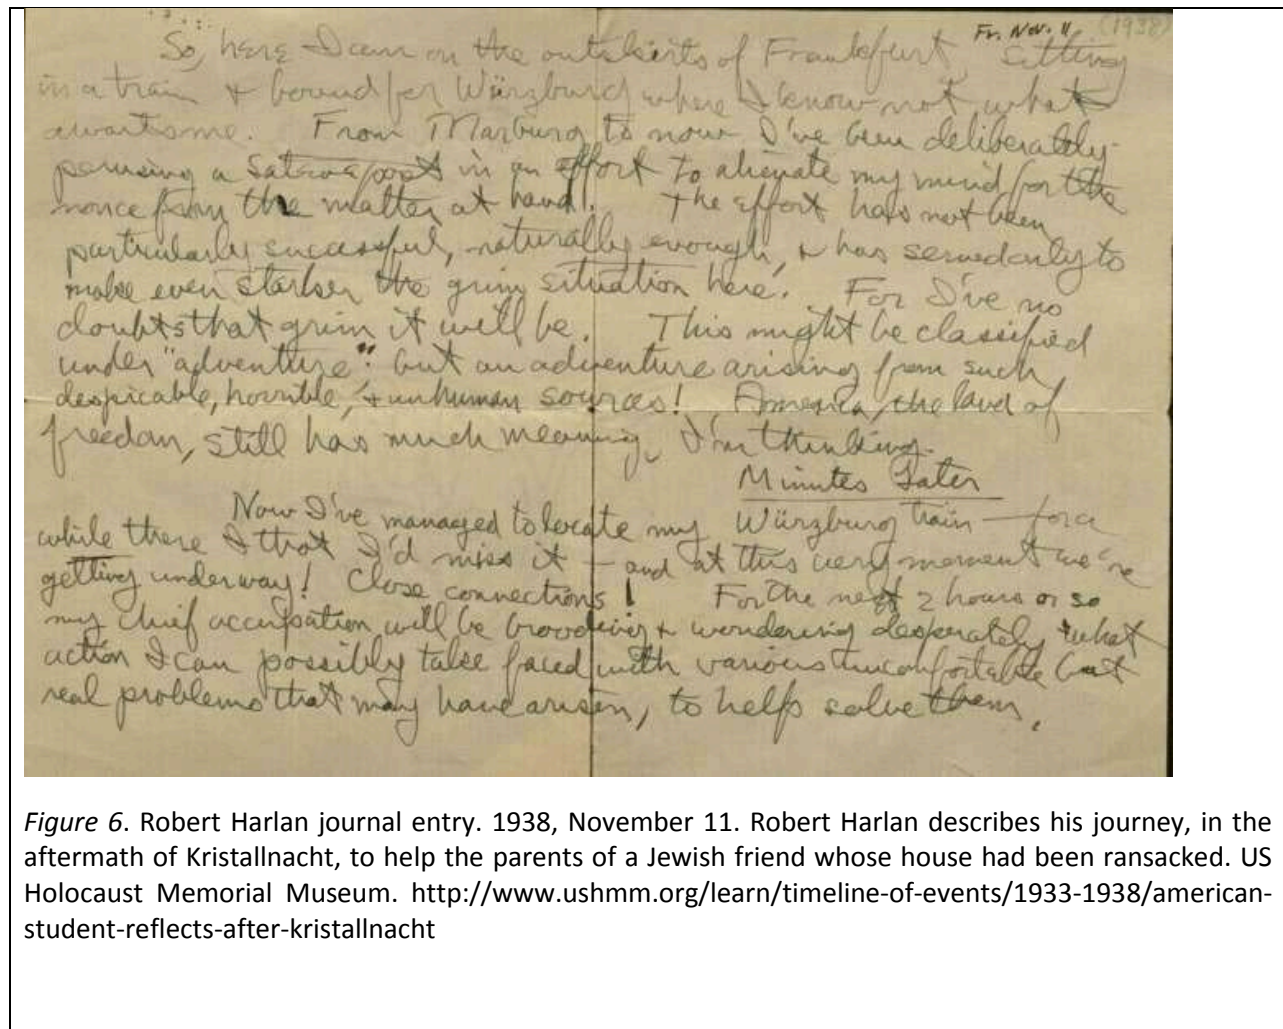 Fr. Nov. 11 (1938)
So, here I am on the outskirts of Frankfurt sitting
in a train & bound for Würzburg where I know not what
awaits me. From Marburg to now I've been deliberately
perusing a Sateveepost in an effort to alienate my mind for the
nonce from the matter at hand. The effort has not been
particularly successful, naturally enough, & has served only to
make even starker the grim situation here. For I've no
doubts that grim it will be. This might be classified
under "adventure" but an adventure arising from such
despicable, horrible, & unhuman sources! America, the land of
freedom, still has much meaning, I'm thinking.
Minutes Later
Now I've managed to locate my Würzburg train — for a
while there I that I'd miss it — and at this very moment we're
getting underway! Close connections! For the next 2 hours or so
my chief occupation will be brooding & wondering desperately what
action I can possibly take faced with various uncomfortable but
real problems that may have arisen, to help solve them.
Figure 6. Robert Harlan journal entry. 1938, November 11. Robert Harlan describes his journey, in the
aftermath of Kristallnacht, to help the parents of a Jewish friend whose house had been ransacked. US
Holocaust Memorial Museum. http://www.ushmm.org/learn/timeline-of-events/1933-1938/american-
student-reflects-after-kristallnacht